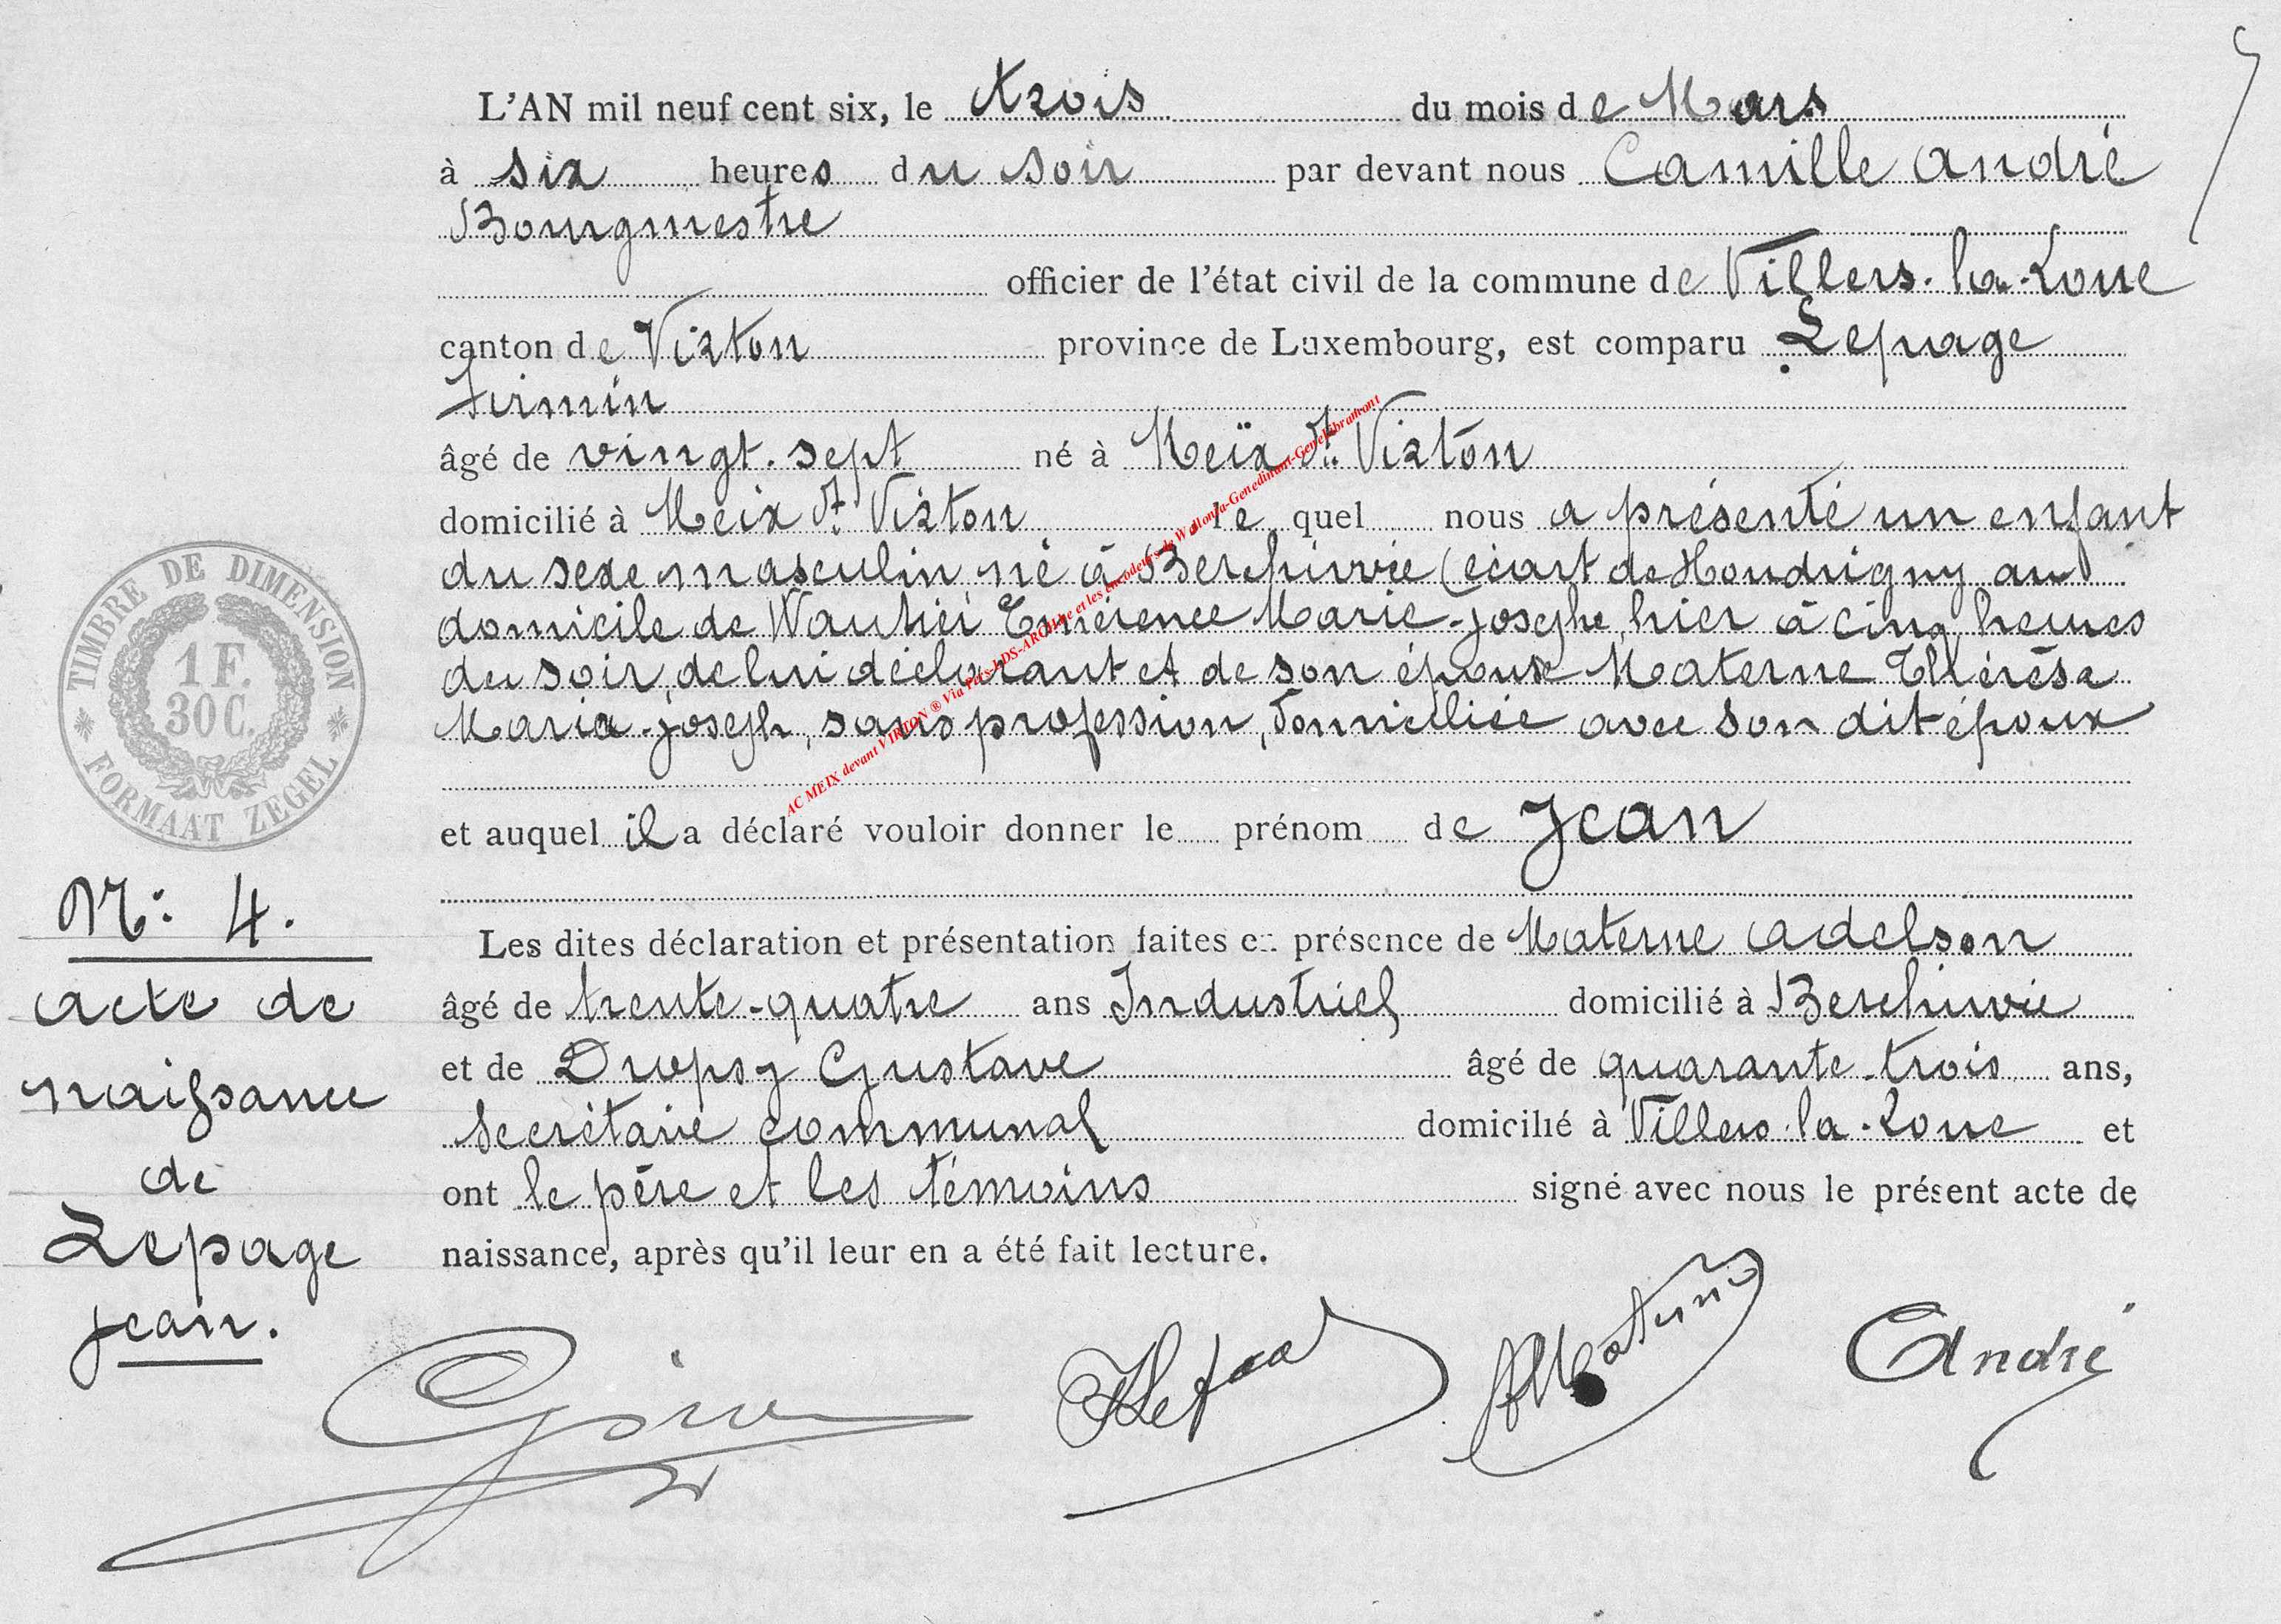 L'AN mil neuf cent six, le trois du mois de Mars
à six heures du soir par devant nous Camille André
Bourgmestre
officier de l'état civil de la commune de Villers-la-Loue
canton de Virton province de Luxembourg, est comparu Lepage
Firmin
âgé de vingt-sept né à Meïx dt Virton
domicilié à Meix dt Virton le quel nous a présenté un enfant
du sexe masculin, né à Berchiwée (écart de Houdrigny au
domicile de Wauthier Emérence Marie-Josephe, hier à cinq heures
du soir, de lui déclarant et de son épouse Materne Thérèse
Maria-Joseph, sans profession, domiciliée avec son dit époux
AC MEIX devant VIRTON ® Via Pers-LDS-ARCHIve et les encodeurs de Wallonia-Genedinant-Genelibramont
TIMBRE DE DIMENSION
1 F.
30 C.
FORMAAT ZEGEL
et auquel il a déclaré vouloir donner le prénom de Jean
Les dites déclaration et présentation faites en présence de Materne Adelson
âgé de trente-quatre ans Industriel domicilié à Berchiwée
et de Dropsy Gustave âgé de quarante-trois ans,
Secrétaire communal domicilié à Villers-la-Loue et
ont le père et les témoins signé avec nous le présent acte de
naissance, après qu'il leur en a été fait lecture.
No: 4.
Acte de
naissance
de
Lepage
Jean.
AMaterne
CAndré